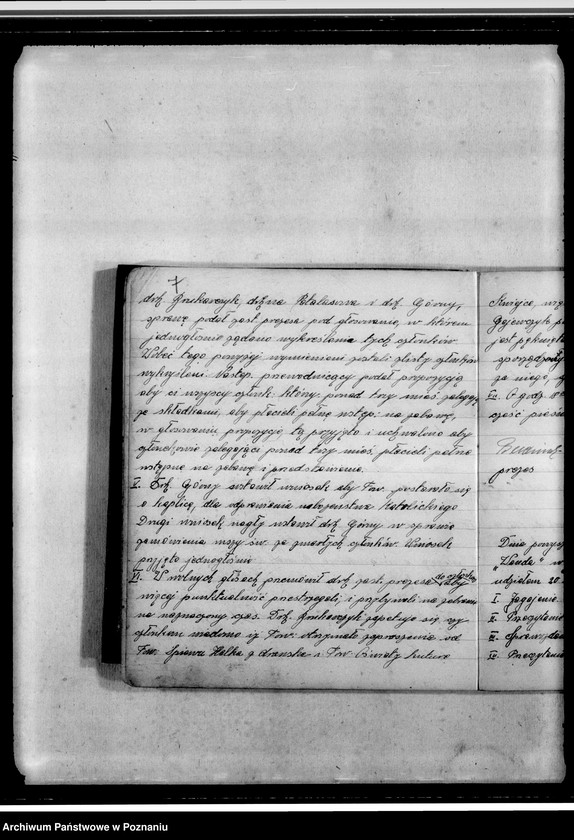 druh. Grukarczyk, druhna Kołałuszna i druh. Górny,
sprawę podał zast prezesa pod głosowanie, w którem
jednogłośnie żądano wykreślenia tych członków.
Wobec tego powyżej wymienieni zostali z listy członków
wykreśleni. Następ. przewodniczący podał propozycję
aby ci wszyscy członk. którzy ponad trzy mies. zalegają
ze składkami, aby płacili pełne wstęp: na zabawę,
w głosowaniu propozycję tą przyjęto i uchwalono aby
członkowie zalegający ponad trzy mies. płacili pełne
wstępne na zabawę i przedstawienia.
V. Dh. Górny ustawił wniosek aby Tow. postarało się
o kaplicę, dla odprawienia nabożeństwa Katolickiego
Drugi wniosek nagły ustawił druh. Górny w sprawie
zamówienia mszy św. za zmarłych członków. Wniosek
przyjęto jednogłośnie
VI. W wolnych głosach przemówił druh. zast. prezesa do członków aby
więcej punktualność przestrzegali, i przybywali na zebrania
na naznaczony czas. Druh. Grukarczyk zapytuje się czy
członkom wiadomo iż Tow. otrzymało zaproszenie od
Tow. Śpiewu Halka z i Tow. Oświaty
Święce,
Gajewczyk
jest
sporządz
za niego,
VII. O godz. 8
cześć pieśni

prezes
Dnia
"Lauda" w
udziałem 20
I. Zagajenie
II. Przeczytanie
III. Sprawozdanie
IV. Przeczytanie
Archiwum Państwowe w Poznaniu